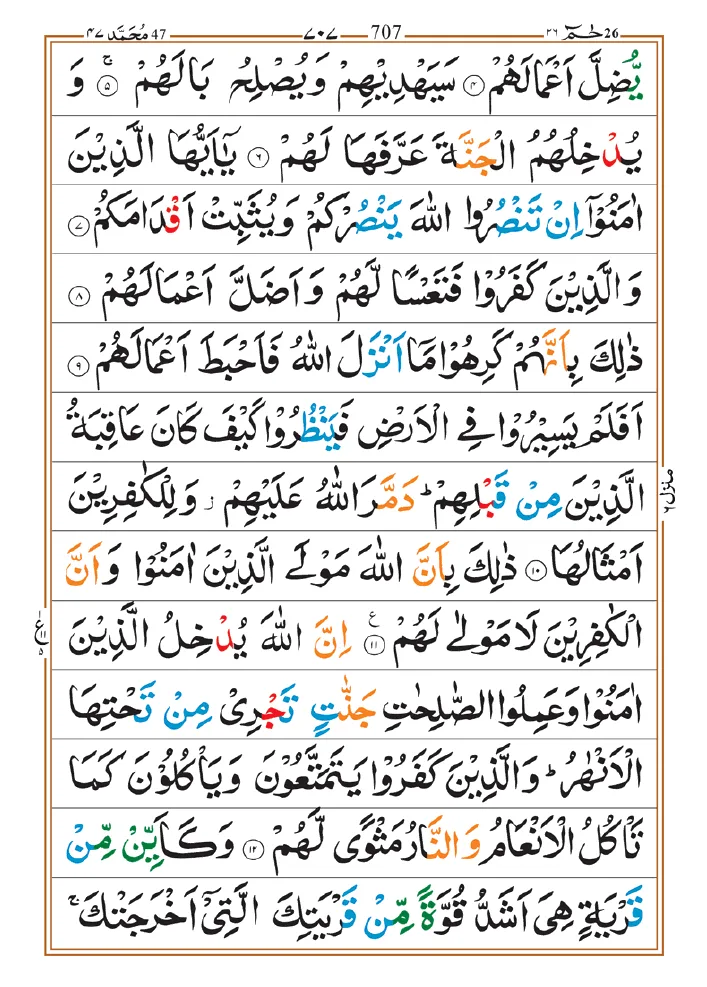 حٰمٓ 26 ۲۶ 707 ۷۰۷ 47 مُحَمَّد ۴۷
یُّضِلَّ اَعْمَالَهُمْ ﴿۴﴾ سَیَهْدِیْهِمْ وَیُصْلِحُ بَالَهُمْ ۚ ﴿۵﴾ وَ
یُدْخِلُهُمُ الْجَنَّةَ عَرَّفَهَا لَهُمْ ﴿۶﴾ یٰۤاَیُّهَا الَّذِیْنَ
اٰمَنُوْۤا اِنْ تَنْصُرُوا اللّٰهَ یَنْصُرْكُمْ وَیُثَبِّتْ اَقْدَامَكُمْ ﴿۷﴾
وَالَّذِیْنَ كَفَرُوْا فَتَعْسًا لَّهُمْ وَاَضَلَّ اَعْمَالَهُمْ ﴿۸﴾
ذٰلِكَ بِاَنَّهُمْ كَرِهُوْا مَاۤ اَنْزَلَ اللّٰهُ فَاَحْبَطَ اَعْمَالَهُمْ ﴿۹﴾
اَفَلَمْ یَسِیْرُوْا فِی الْاَرْضِ فَیَنْظُرُوْا كَیْفَ كَانَ عَاقِبَةُ
الَّذِیْنَ مِنْ قَبْلِهِمْ ؕ دَمَّرَ اللّٰهُ عَلَیْهِمْ ؗ وَلِلْكٰفِرِیْنَ
اَمْثَالُهَا ﴿۱۰﴾ ذٰلِكَ بِاَنَّ اللّٰهَ مَوْلَی الَّذِیْنَ اٰمَنُوْا وَاَنَّ
الْكٰفِرِیْنَ لَا مَوْلٰی لَهُمْ ﴿۱۱﴾ ع اِنَّ اللّٰهَ یُدْخِلُ الَّذِیْنَ
اٰمَنُوْا وَعَمِلُوا الصّٰلِحٰتِ جَنّٰتٍ تَجْرِیْ مِنْ تَحْتِهَا
الْاَنْهٰرُ ؕ وَالَّذِیْنَ كَفَرُوْا یَتَمَتَّعُوْنَ وَیَاْكُلُوْنَ كَمَا
تَاْكُلُ الْاَنْعَامُ وَالنَّارُ مَثْوًی لَّهُمْ ﴿۱۲﴾ وَكَاَیِّنْ مِّنْ
قَرْیَةٍ هِیَ اَشَدُّ قُوَّةً مِّنْ قَرْیَتِكَ الَّتِیْۤ اَخْرَجَتْكَ ۚ
منزل ۶